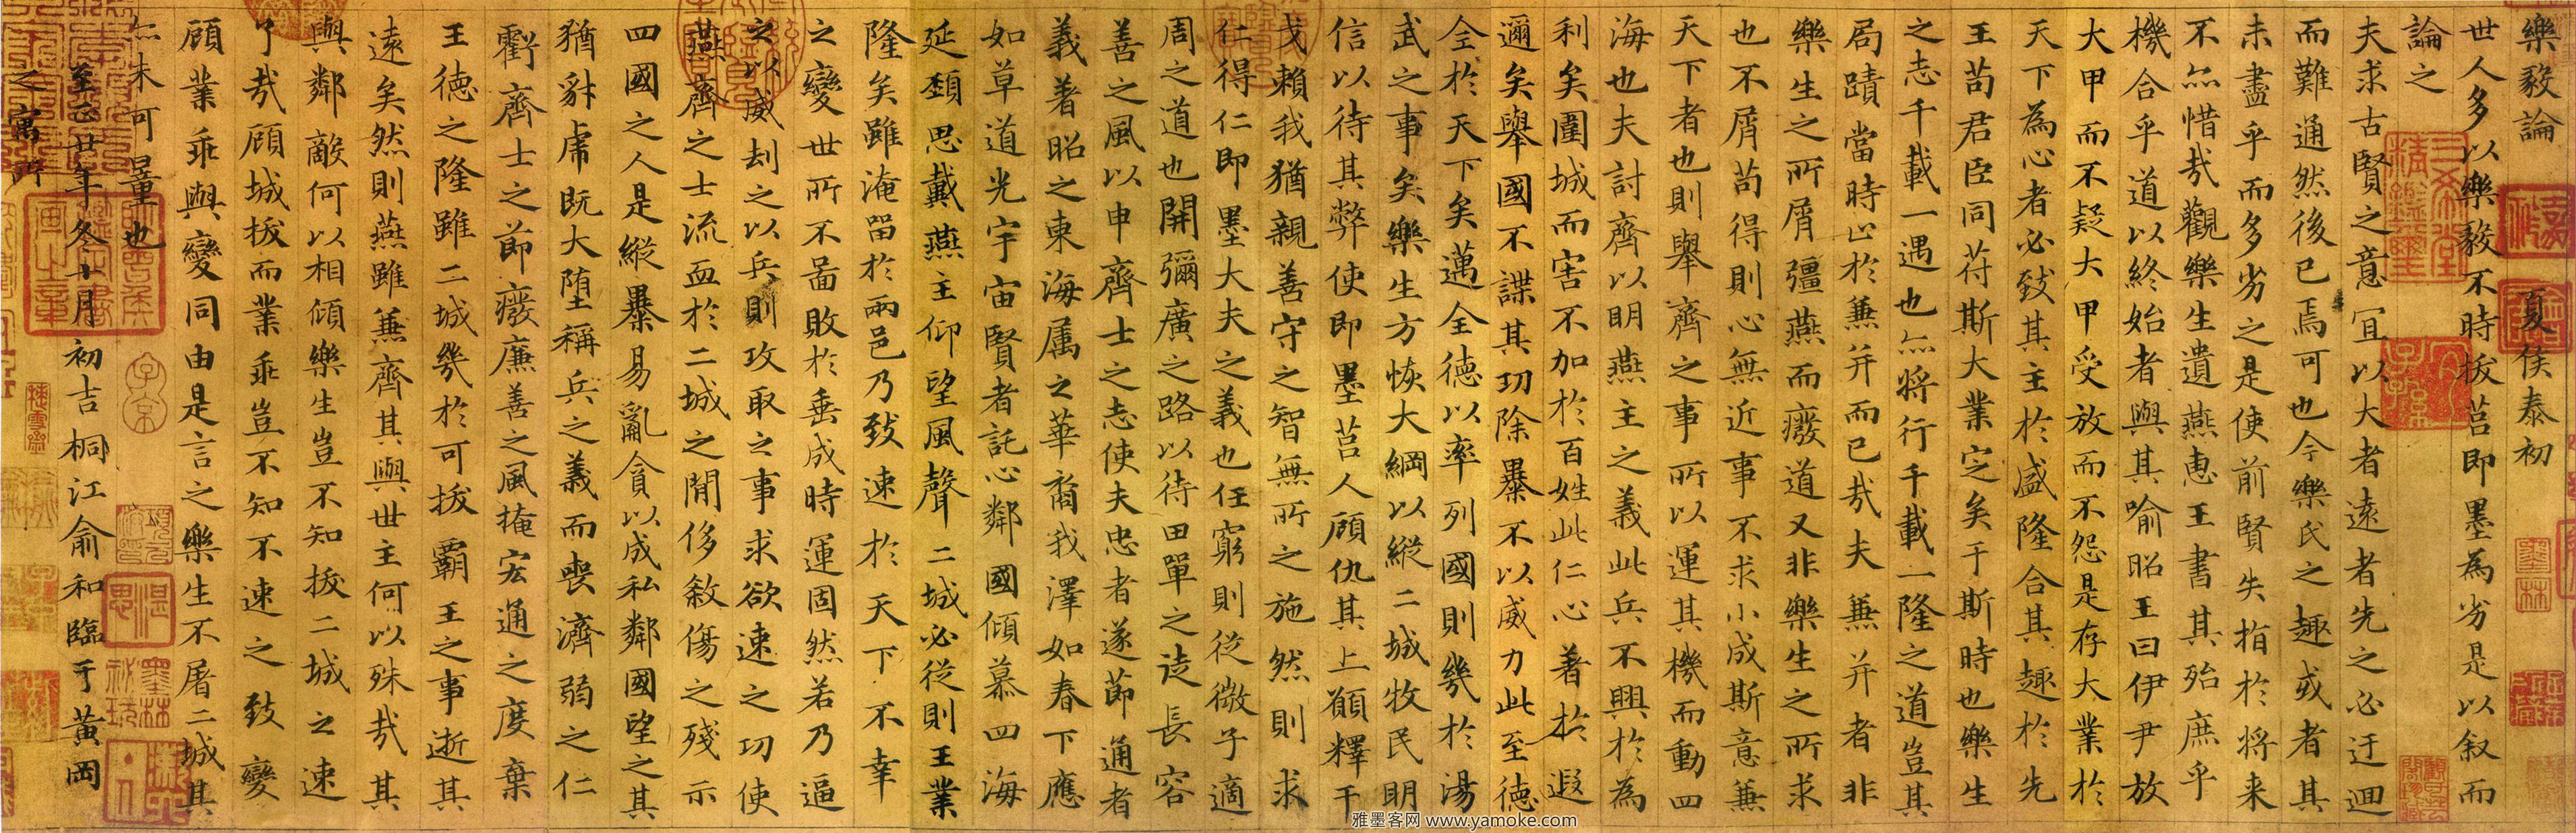 樂毅論 夏侯泰初
世人多以樂毅不時拔莒即墨為劣是以叙而
論之
夫求古賢之意宜以大者遠者先之必迂迴
而難通然後已焉可也今樂氏之趣或者其
未盡乎而多劣之是使前賢失指於將来
不亦惜哉觀樂生遺燕惠王書其殆庶乎
機合乎道以終始者與其喻昭王曰伊尹放
大甲而不疑大甲受放而不怨是存大業於
天下為心者必致其主於盛隆合其趣於先
王苟君臣同苻斯大業定矣于斯時也樂生
之志千載一遇也亦將行千載一隆之道豈其
局蹟當時止於兼并而已哉夫兼并者非
樂生之所屑彊燕而癈道又非樂生之所求
也不屑苟得則心無近事不求小成斯意兼
天下者也則舉齊之事所以運其機而動四
海也夫討齊以明燕主之義此兵不興於為
利矣圍城而害不加於百姓此仁心著於遐
邇矣舉國不謀其功除暴不以威力此至德
全於天下矣邁全德以率列國則幾於湯
武之事矣樂生方恢大綱以縱二城牧民明
信以待其弊使即墨莒人顧仇其上願釋干
戈賴我猶親善守之智無所之施然則求
仁得仁即墨大夫之義也任窮則從微子適
周之道也開彌廣之路以待田單之徒長容
善之風以申齊士之志使夫忠者遂節通者
義著昭之東海属之華裔我澤如春下應
如草道光宇宙賢者託心鄰國傾慕四海
延頸思戴燕主仰望風聲二城必從則王業
隆矣雖淹留於兩邑乃致速於天下不幸
之變世所不啚敗於垂成時運固然若乃逼
之以威刦之以兵則攻取之事求欲速之功使
燕齊之士流血於二城之閒侈敘傷之殘示
四國之人是縱暴易亂貪以成私鄰國望之其
猶豺虎既大堕稱兵之義而喪濟弱之仁
虧齊士之節癈廉善之風掩宏通之度棄
王德之隆雖二城幾於可拔霸王之事逝其
遠矣然則燕雖兼齊其與世主何以殊哉其
與鄰敵何以相傾樂生豈不知拔二城之速
了哉顧城拔而業乖豈不知不速之致變
顧業乖與變同由是言之樂生不屠二城其
亦未可量也
至正廿年冬十月初吉桐江俞和臨于黃岡
之寓所
雅墨客网 www.yamoke.com